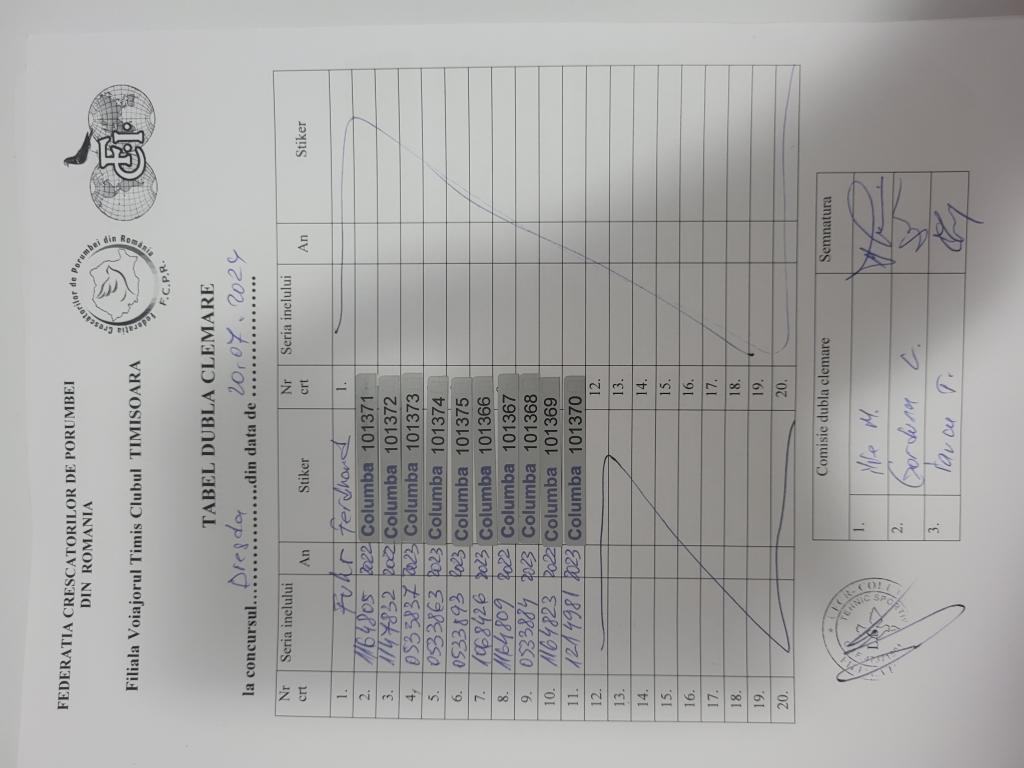 FEDERATIA CRESCATORILOR DE PORUMBEI
DIN ROMANIA
Filiala Voiajorul Timis Clubul TIMISOARA
Federatia Crescatorilor de Porumbei din România
F.C.P.R.
FCI
TABEL DUBLA CLEMARE
la concursul Dresda din data de 20.07.2024
Nr crt Seria inelului An Stiker Nr crt Seria inelului An Stiker
1. Fuhr Ferdinand 1.
2. 1164805 2022 Columba 101371
3. 1147832 2022 Columba 101372
4. 0533837 2023 Columba 101373
5. 0533863 2023 Columba 101374
6. 0533893 2023 Columba 101375
7. 1068426 2023 Columba 101366
8. 1164809 2022 Columba 101367
9. 0533884 2023 Columba 101368
10. 1164823 2022 Columba 101369
11. 1214981 2023 Columba 101370
12. 12.
13. 13.
14. 14.
15. 15.
16. 16.
17. 17.
18. 18.
19. 19.
20. 20.
Comisie dubla clemare Semnatura
1. M.
2. C.
3. T.
TEHNIC SPORTIV